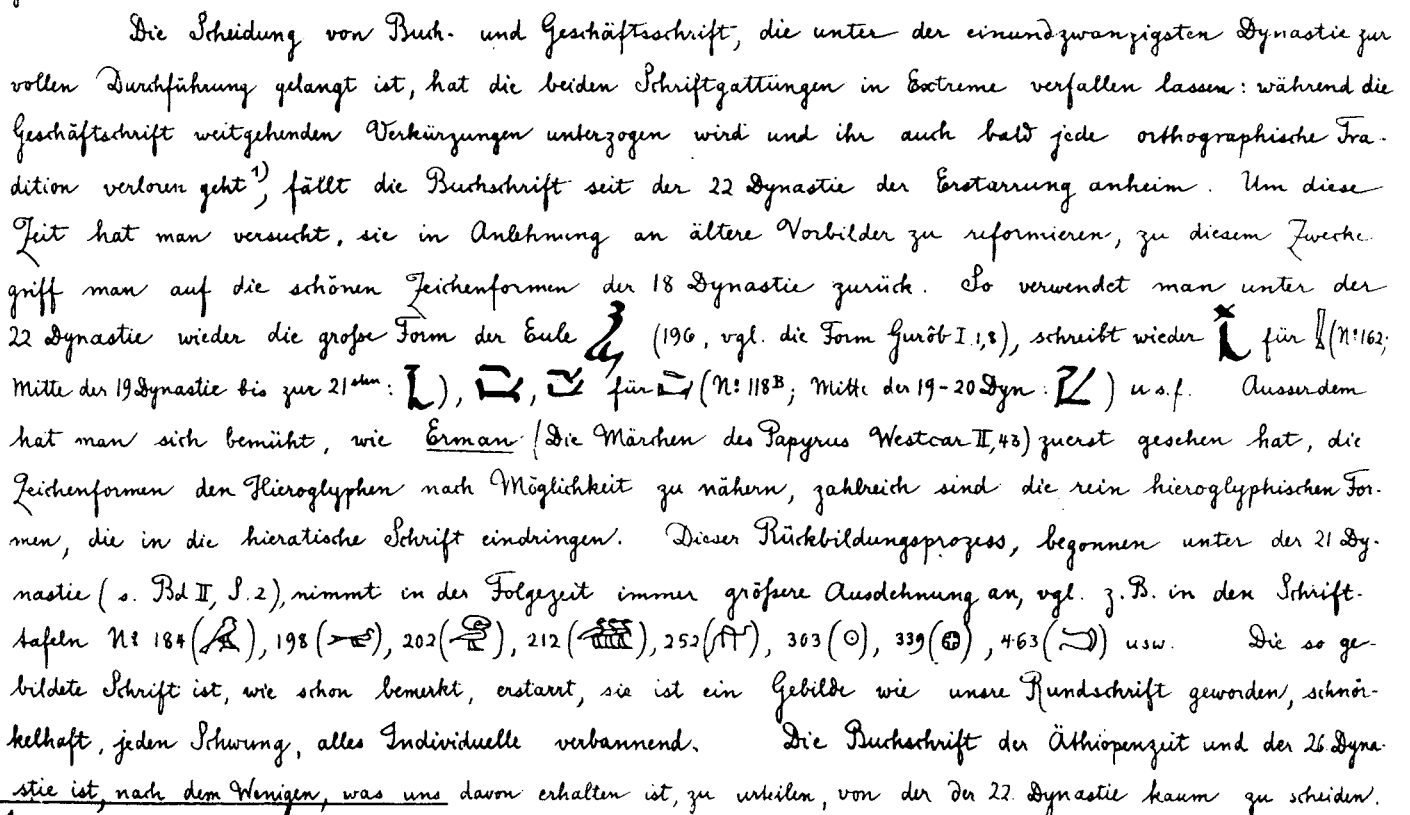 Die Scheidung von Buch- und Geschäftsschrift, die unter der einundzwanzigsten Dynastie zur
vollen Durchführung gelangt ist, hat die beiden Schriftgattungen in Extreme verfallen lassen: während die
Geschäftschrift weitgehenden Verkürzungen unterzogen wird und ihr auch bald jede orthographische Tra-
dition verloren geht¹⁾, fällt die Buchschrift seit der 22 Dynastie der Erstarrung anheim. Um diese
Zeit hat man versucht, sie in Anlehnung an ältere Vorbilder zu reformieren, zu diesem Zwecke
griff man auf die schönen Zeichenformen der 18 Dynastie zurück. So verwendet man unter der
22 Dynastie wieder die große Form der Eule (196, vgl. die Form Gurôb I.1,8), schreibt wieder für (No 162;
Mitte der 19 Dynastie bis zur 21sten: ), , für (No 118B; Mitte der 19-20 Dyn: ) u.s.f. Ausserdem
hat man sich bemüht, wie Erman (Die Märchen des Papyrus Westcar II, 43) zuerst gesehen hat, die
Zeichenformen den Hieroglyphen nach Möglichkeit zu nähern, zahlreich sind die rein hieroglyphischen For-
men, die in die hieratische Schrift eindringen. Dieser Rückbildungsprozess, begonnen unter der 21 Dy-
nastie (s. Bd II, S.2), nimmt in der Folgezeit immer größere Ausdehnung an, vgl. z.B. in den Schrift-
tafeln No 184 ( ), 198 ( ), 202 ( ), 212 ( ), 252 ( ), 303 (☉), 339 (⊕), 463 ( ) usw. Die so ge-
bildete Schrift ist, wie schon bemerkt, erstarrt, sie ist ein Gebilde wie unsre Rundschrift geworden, schnör-
kelhaft, jeden Schwung, alles Individuelle verbannend. Die Buchschrift der Äthiopenzeit und der 26 Dyna-
stie ist, nach dem Wenigen, was uns davon erhalten ist, zu urteilen, von der der 22 Dynastie kaum zu scheiden.